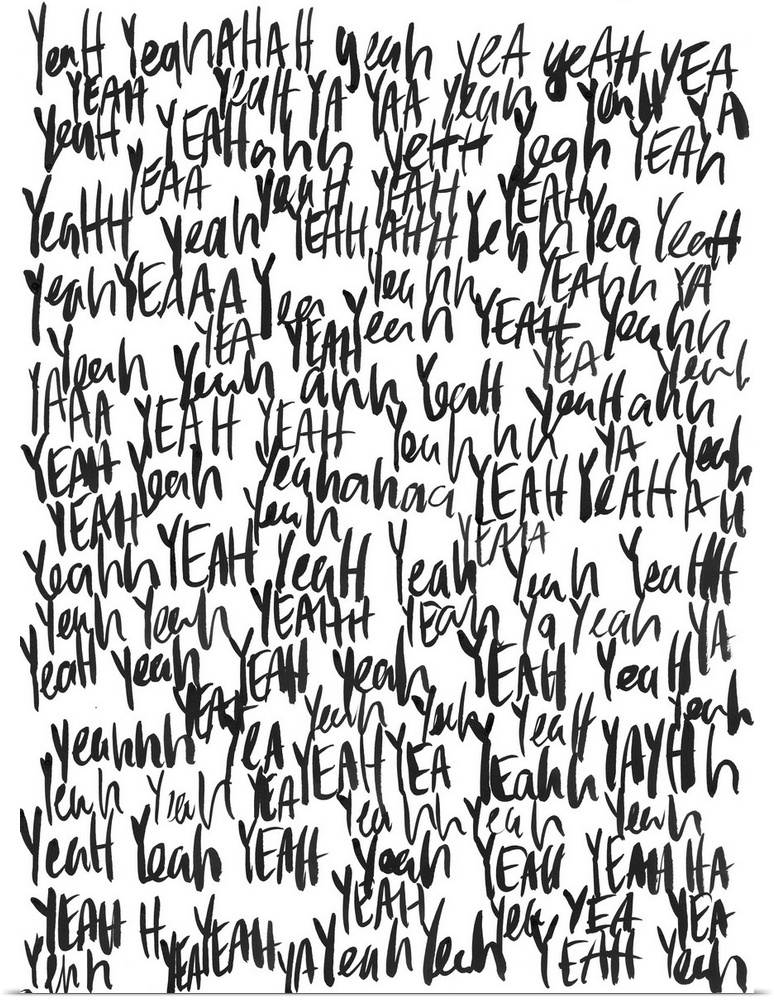 YeaH YeahAHAH yeah yEA yeAH YEA
YEAH YeaH YA YAA Yeah YeaH YA
Yeah YEAHahh YeHH Yeah YEAh
YEAA YeaH YEAH YEAH
YeaHH yeah YEAH AHH Yeah h Yea YeaH
yeahYEAAA Yea Yeahh YEAhh YA
YEA YEAH Yeah YEAH Yeahh
Yeah Yeah ahh YeaH YEA Yeah
YAAA YEAH YEAH Yeah hh YeaHahh YA
YEAH Yeah Yeahahaa YEAH YeAH AH Yeah
YEAH Yeah YEAA
Yeahh YEAH YeaH Yeah Yeah YeaHH
Yeah Yeah YEAHH YEah Ya Yeah YA
YeaH Yeah YEAH yeah YEAH YeaH
YEAH Yeah Yeah YeaH Yeah
Yeahhh YeA YEAH YEA Yeahh YAYHh
Yeah Yeah YEA Yeahh Yeah Yeah
YeaH Yeah YEAH Yeah YEAH YEAHHA
YEAH H YEAH YEAH Yea YEA YEA
Yeah YEA YA Yeah Yeah YEAH Yeah